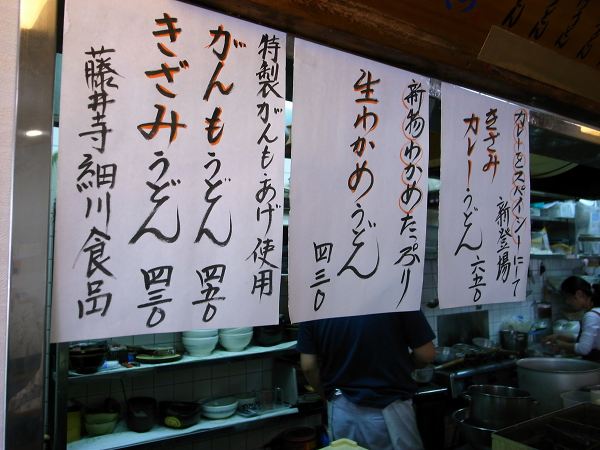 カレーをスパイシーにて
新登場
きざみ
カレーうどん 六五〇
新物わかめたっぷり
生わかめうどん
四三〇
特製がんもあげ使用
がんもうどん 四五〇
きざみうどん 四三〇
藤井寺 細川食品